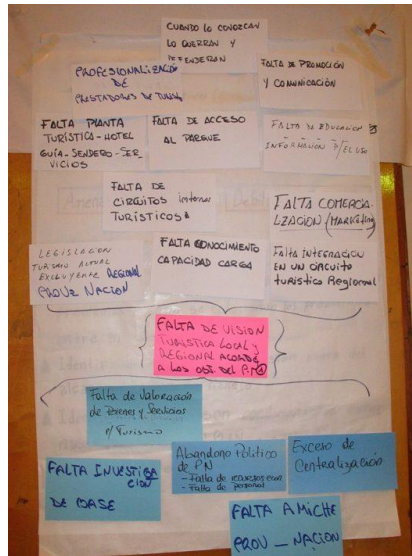 CUANDO LO CONOZCAN
LO QUERRAN Y
DEFENDERAN
PROFESIONALIZACIÓN
DE
PRESTADORES DE TURISMO
FALTA DE PROMOCION
Y COMUNICACIÓN
FALTA PLANTA
TURÍSTICA - HOTEL
GUÍA - SENDERO - SER
VICIOS
FALTA DE ACCESO
AL PARQUE
FALTA DE EDUCACION
INFORMACION P/EL USO
FALTA DE
CIRCUITOS internos
TURÍSTICOS
FALTA COMERCIA
LIZACION (MARKETING)
LEGISLACION
TURISMO ACTUAL
EXCLUYENTE REGIONAL
PROV= NACION
FALTA CONOCIMIENTO
CAPACIDAD CARGA
FALTA INTEGRACION
EN UN CIRCUITO
TURISTICO REGIONAL
FALTA DE VISION
TURISTICA LOCAL Y
REGIONAL ACORDE
A LOS OBJ. DEL P.N
Falta de Valoración
de Bienes y Servicios
p/ Turismo
Abandono Político
de PN
- Falta de recursos econ
- Falta de personal
Exceso de
Centralización
FALTA INVESTIGA
CION
DE BASE
FALTA AMICHE
PROV _ NACION